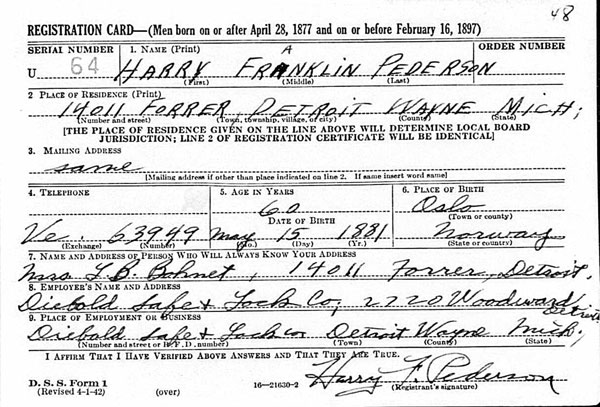 48
REGISTRATION CARD—(Men born on or after April 28, 1877 and on or before February 16, 1897)
SERIAL NUMBER 1. NAME (Print) ORDER NUMBER
U 64 HARRY FRANKLIN PEDERSON
(First) (Middle) (Last)
2 PLACE OF RESIDENCE (Print)
14011 FORRER DETROIT WAYNE MICH;
(Number and street) (Town, township, village, or city) (County) (State)
[THE PLACE OF RESIDENCE GIVEN ON THE LINE ABOVE WILL DETERMINE LOCAL BOARD
JURISDICTION; LINE 2 OF REGISTRATION CERTIFICATE WILL BE IDENTICAL]
3. MAILING ADDRESS
same
[Mailing address if other than place indicated on line 2. If same insert word same]
4. TELEPHONE 5. AGE IN YEARS 6. PLACE OF BIRTH
60 Oslo
DATE OF BIRTH (Town or county)
Ve. 63949 May 15 1881 Norway
(Exchange) (Number) (Mo.) (Day) (Yr.) (State or country)
7. NAME AND ADDRESS OF PERSON WHO WILL ALWAYS KNOW YOUR ADDRESS
Mrs L.B. Bohnet, 14011 Forrer, Detroit.
8. EMPLOYER'S NAME AND ADDRESS
Diebold Safe & Lock Co; 2220 Woodward Detroit
9. PLACE OF EMPLOYMENT OR BUSINESS
Diebold Safe & Lock co Detroit Wayne Mich.,
(Number and street or R. F. D. number) (Town) (County) (State)
I AFFIRM THAT I HAVE VERIFIED ABOVE ANSWERS AND THAT THEY ARE TRUE.
Harry F. Pederson
D. S. S. Form 1 16—21630-2 (Registrant's signature)
(Revised 4-1-42) (over)